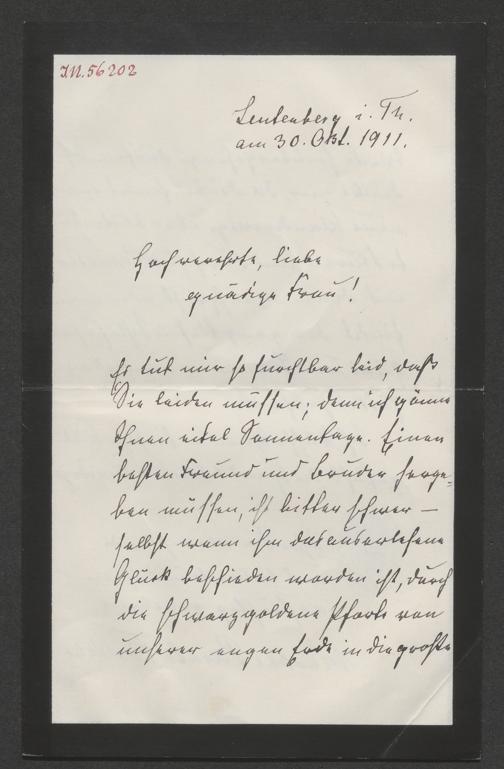 IN. 56202
Leutenberg i. Th.
am 30. Okt. 1911.
Hochverehrte, liebe
gnädige Frau!
Es tut mir so furchtbar leid, daß
Sie leiden müssen; denn ich gönne
Ihnen eitel Sonnentage. Einen
besten Freund und Bruder herge-
ben müssen, ist bitter schwer —
selbst wenn ihm das auserlesene
Glück beschieden worden ist, durch
die schwarzgoldene Pforte von
unserer engen Erde in die große